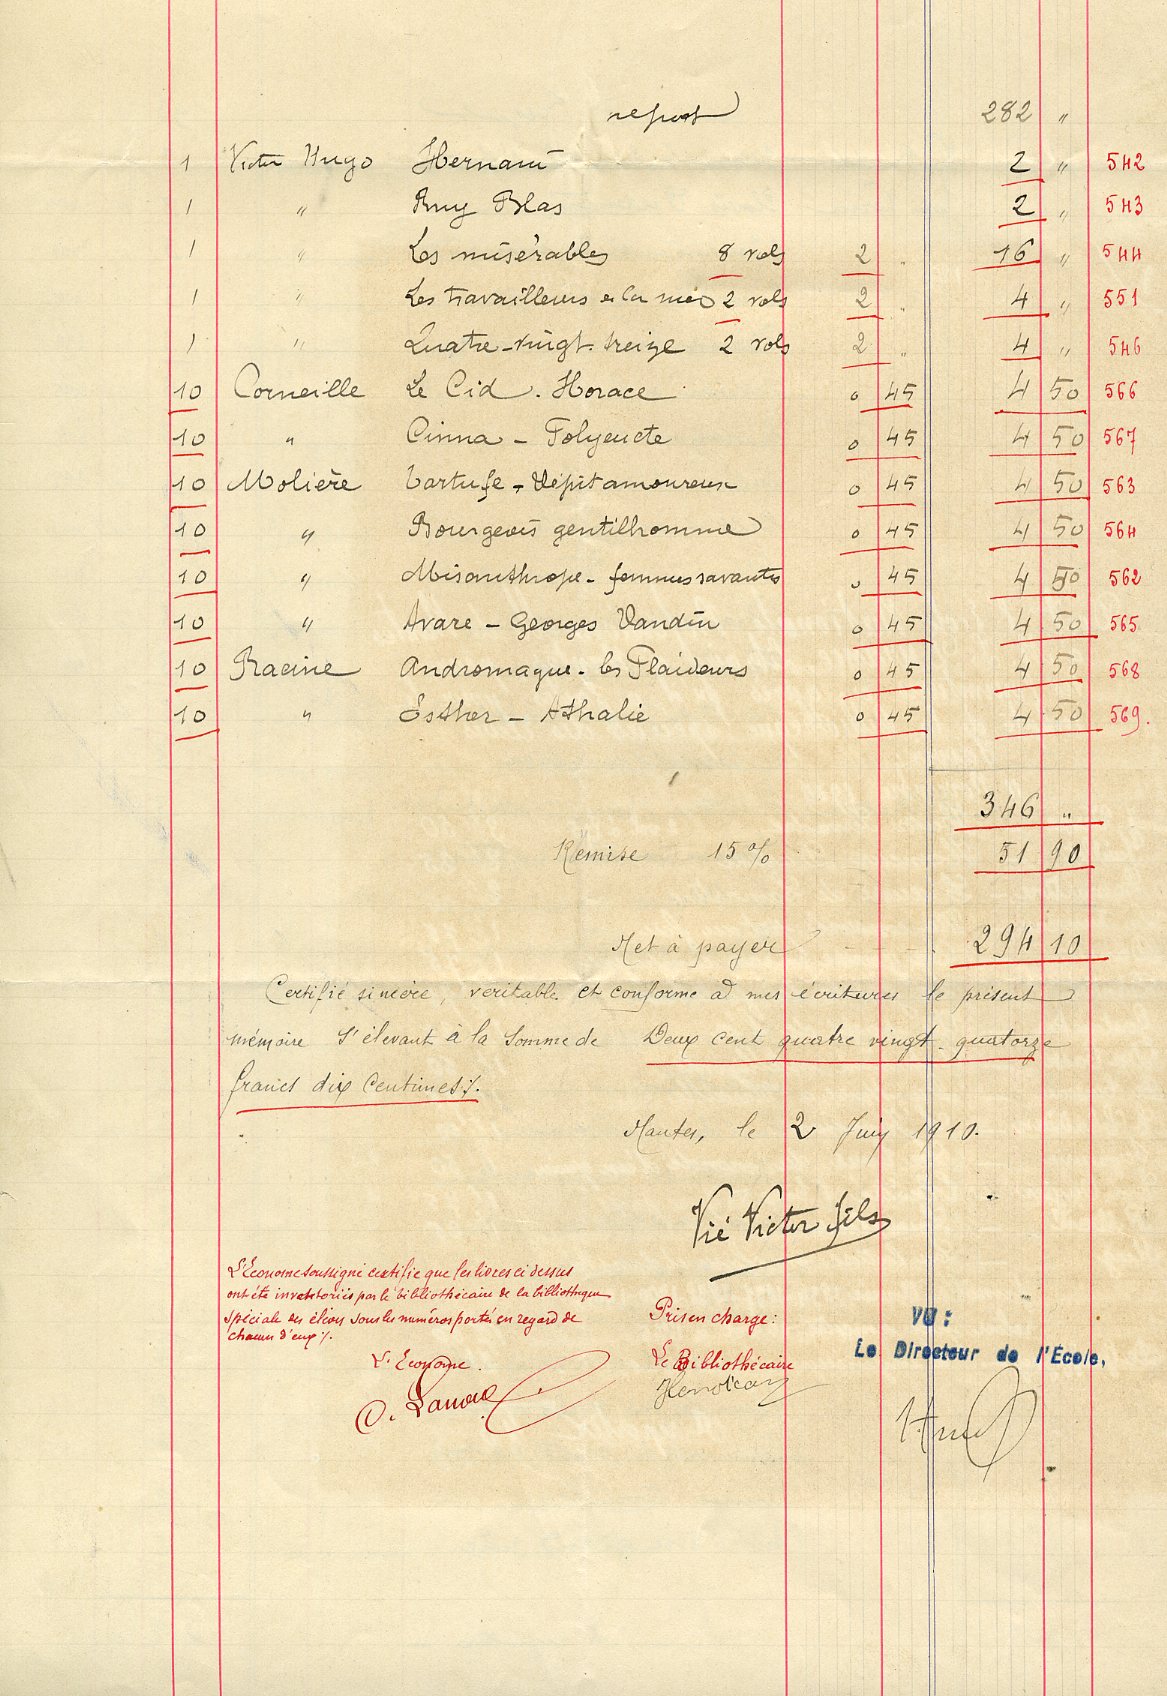 report 282 "
1 Victor Hugo Hernani 2 " 542
1 " Ruy Blas 2 " 543
1 " Les misérables 8 vols 2 " 16 " 544
1 " Les travailleurs de la mer 2 vols 2 " 4 " 551
1 " Quatre-vingt-treize 2 vols 2 " 4 " 546
10 Corneille Le Cid . Horace 0 45 4 50 566
10 " Cinna - Polyeucte 0 45 4 50 567
10 Molière Tartufe - Dépit amoureux 0 45 4 50 563
10 " Bourgeois gentilhomme 0 45 4 50 564
10 " Misanthrope - femmes savantes 0 45 4 50 562
10 " Avare - Georges Dandin 0 45 4 50 565
10 Racine Andromaque - les Plaideurs 0 45 4 50 568
10 " Esther - Athalie 0 45 4 50 569.
346 "
Remise 15 % 51 90
Net à payer 294 10
Certifié sincère, véritable et conforme à mes écritures le présent
mémoire s'élevant à la somme de Deux cent quatre vingt-quatorze
francs dix centimes ./.
Nantes, le 2 Juin 1910.
Vié Victor fils
L'Econome soussigné certifie que les livres ci dessus
ont été inventoriés par le bibliothécaire de la bibliothèque
spéciale des élèves sous les numéros portés en regard de
chacun d'eux ./.
L'Econome.
Pris en charge:
Le Bibliothécaire
VU:
Le Directeur de l'École,